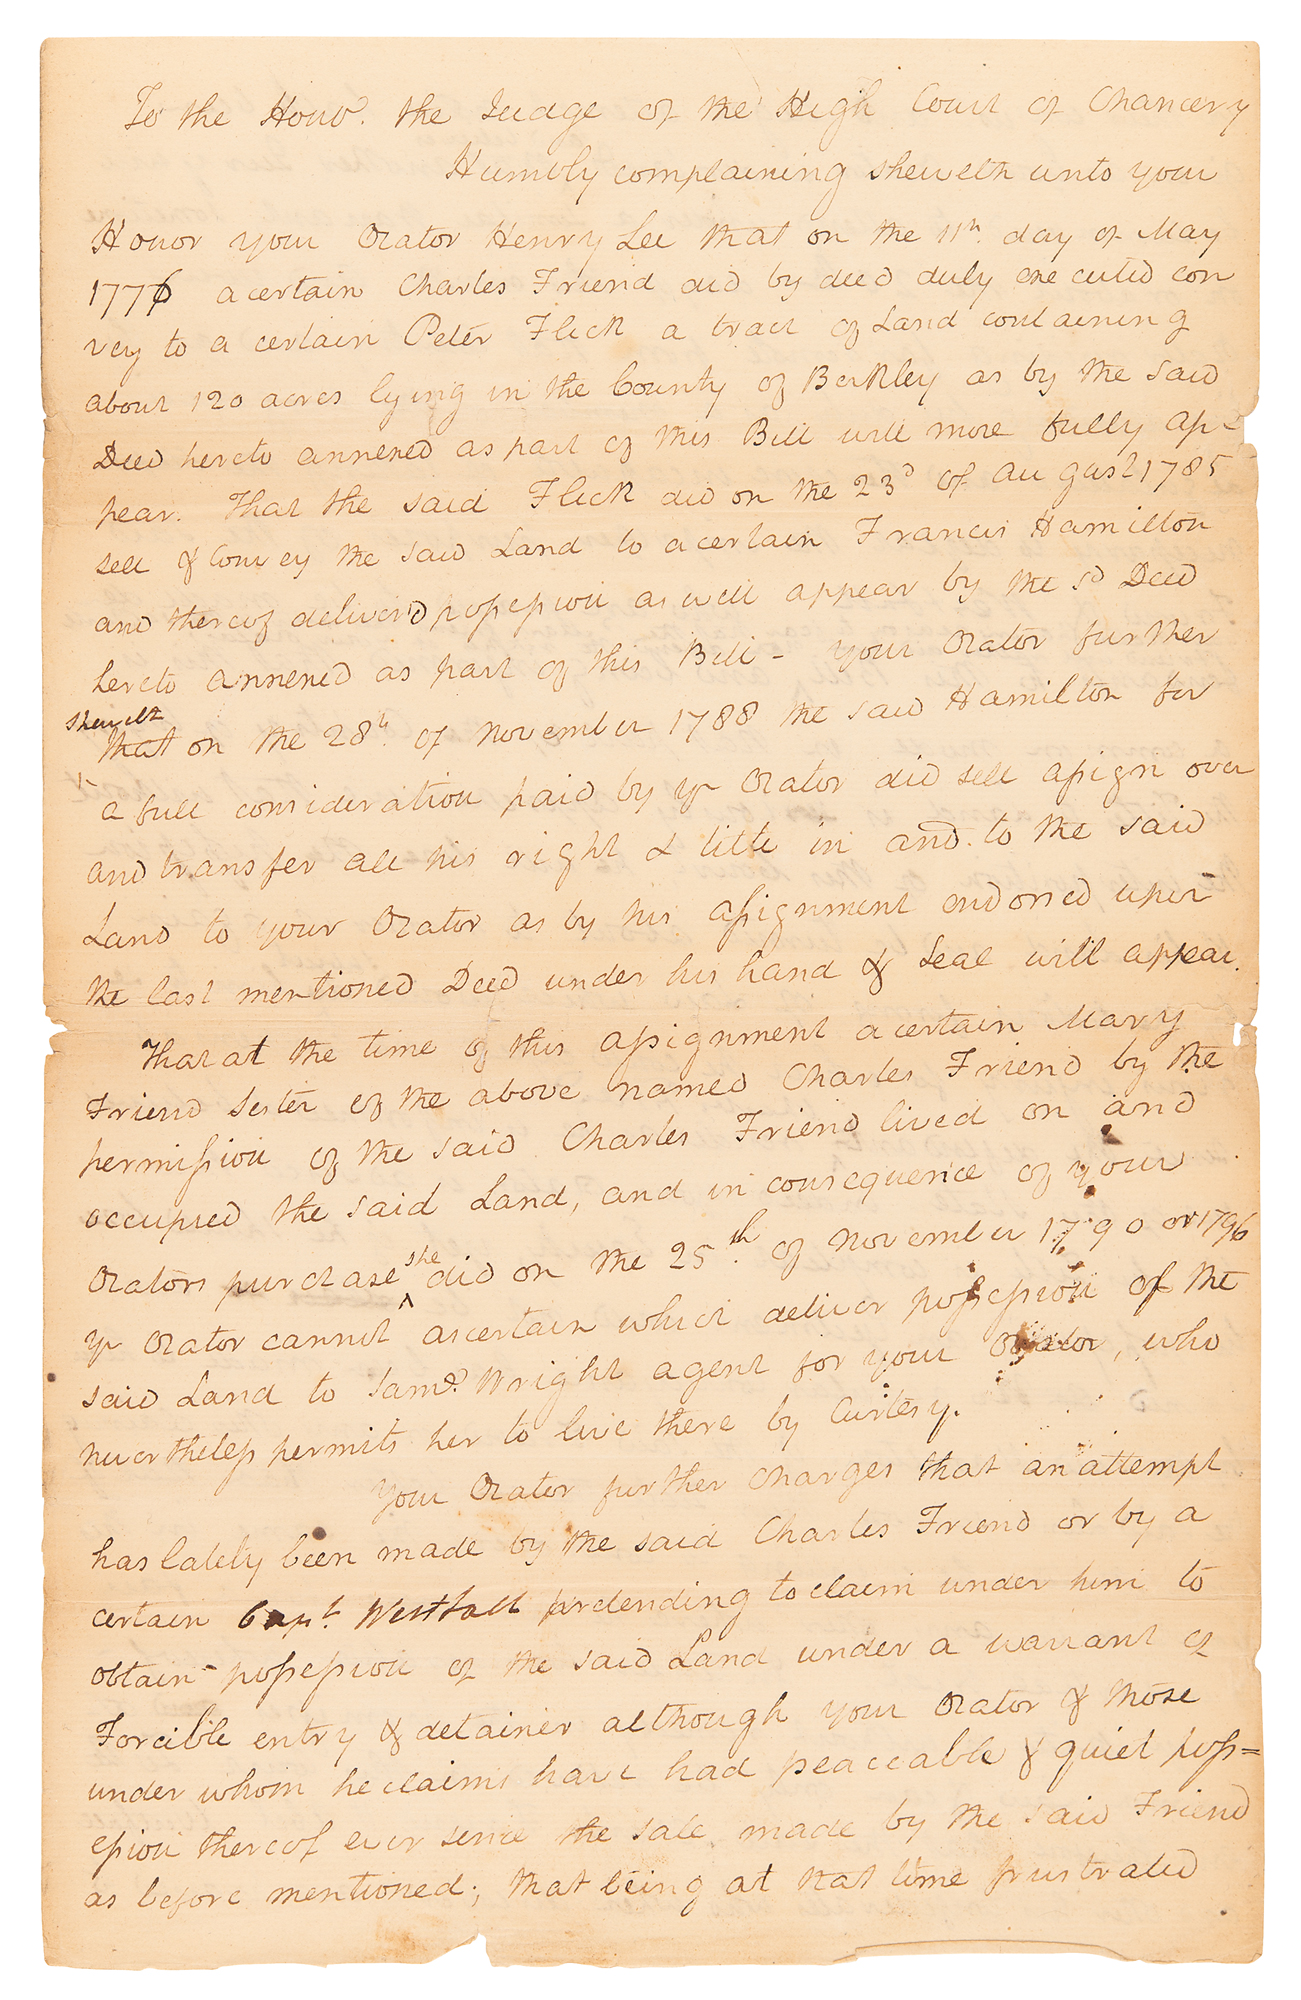 To the Honb. the Judge of the High Court of Chancery
Humbly complaining sheweth unto your
Honor your Orator Henry Lee that on the 11th. day of May
1776 a certain Charles Friend did by deed duly executed con
vey to a certain Peter Flick a tract of Land containing
about 120 acres lying in the County of Berkley as by the said
Deed hereto annexed as part of this Bill will more fully ap-
pear. That the said Flick did on the 23d of August 1785
sell & Convey the said Land to a certain Francis Hamilton
and thereof deliver'd possession as well appear by the sd Deed
hereto annexed as part of this Bill - your Orator further
sheweth
that on the 28th. of November 1788 the said Hamilton for
a full consideration paid by yr Orator did sell assign over
and transfer all his right & title in and to the said
Land to your Orator as by his assignment endorsed upon
the last mentioned Deed under his hand & Seal will appear.
That at the time of this assignment a certain Mary
Friend Sister of the above named Charles Friend by the
permission of the said Charles Friend lived on and
occupied the said Land, and in consequence of your
Orators purchase she did on the 25th. of November 1790 or 1796
yr Orator cannot ascertain which deliver possession of the
said Land to Saml. Wright agent for your Orator, who
nevertheless permits her to live there by Curtesy.
Your Orator further charges that an attempt
has lately been made by the said Charles Friend or by a
certain Capt. Westfall pretending to claim under him to
obtain possession of the said Land under a warrant of
Forcible entry & detainer although your Orator & those
under whom he claims have had peaceable & quiet poss=
ession thereof ever since the sale made by the said Friend
as before mentioned; that being at that time frustrated